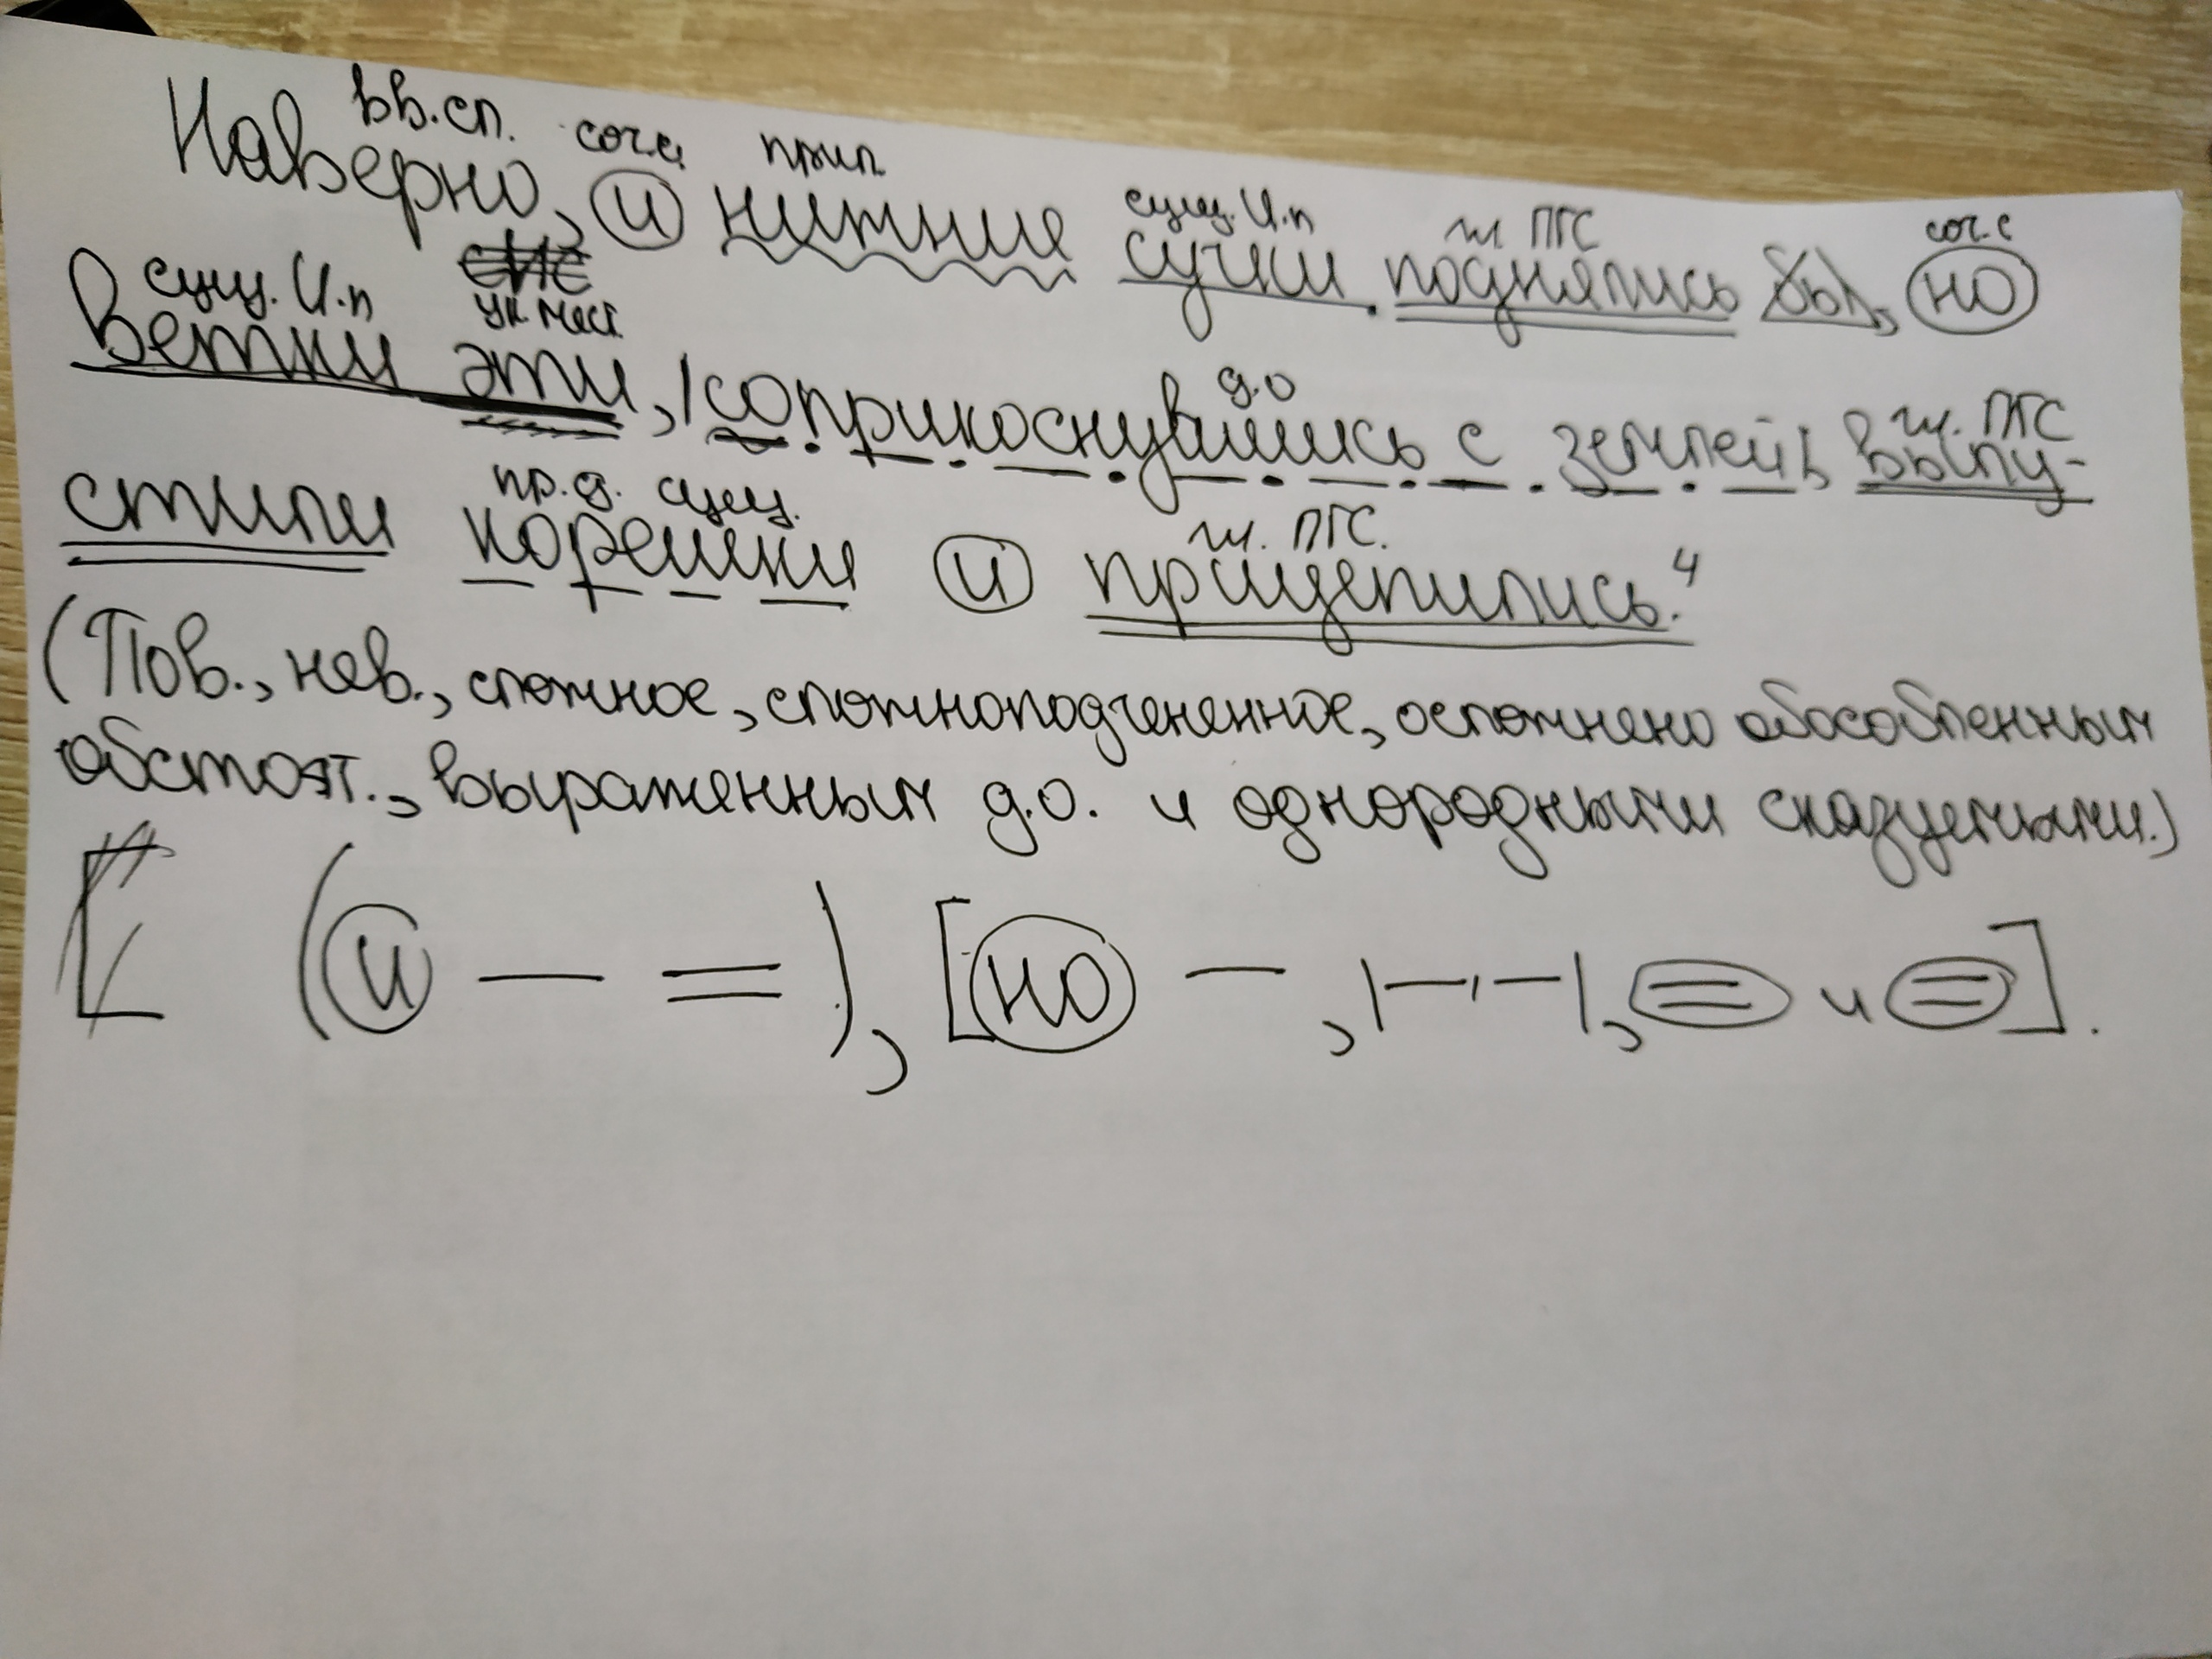 вв.сп. соч.с. прил.
Наверно, и нижние сучки поднялись бы, но
сущ. И.п гл ПГС соч.с
сущ. И.п ук. мест.
ветки эти, |соприкоснувшись с землей|, выпу-
д.о гл. ПГС
стили корешки и прицепились.⁴
пр.д. сущ. гл. ПГС.
(Пов., нев., сложное, сложноподчененное, осложнено обособленным
обстоят., выраженным д.о. и однородными сказуемыми.)
[ (и — =), [но —, |—.—|, = и =].